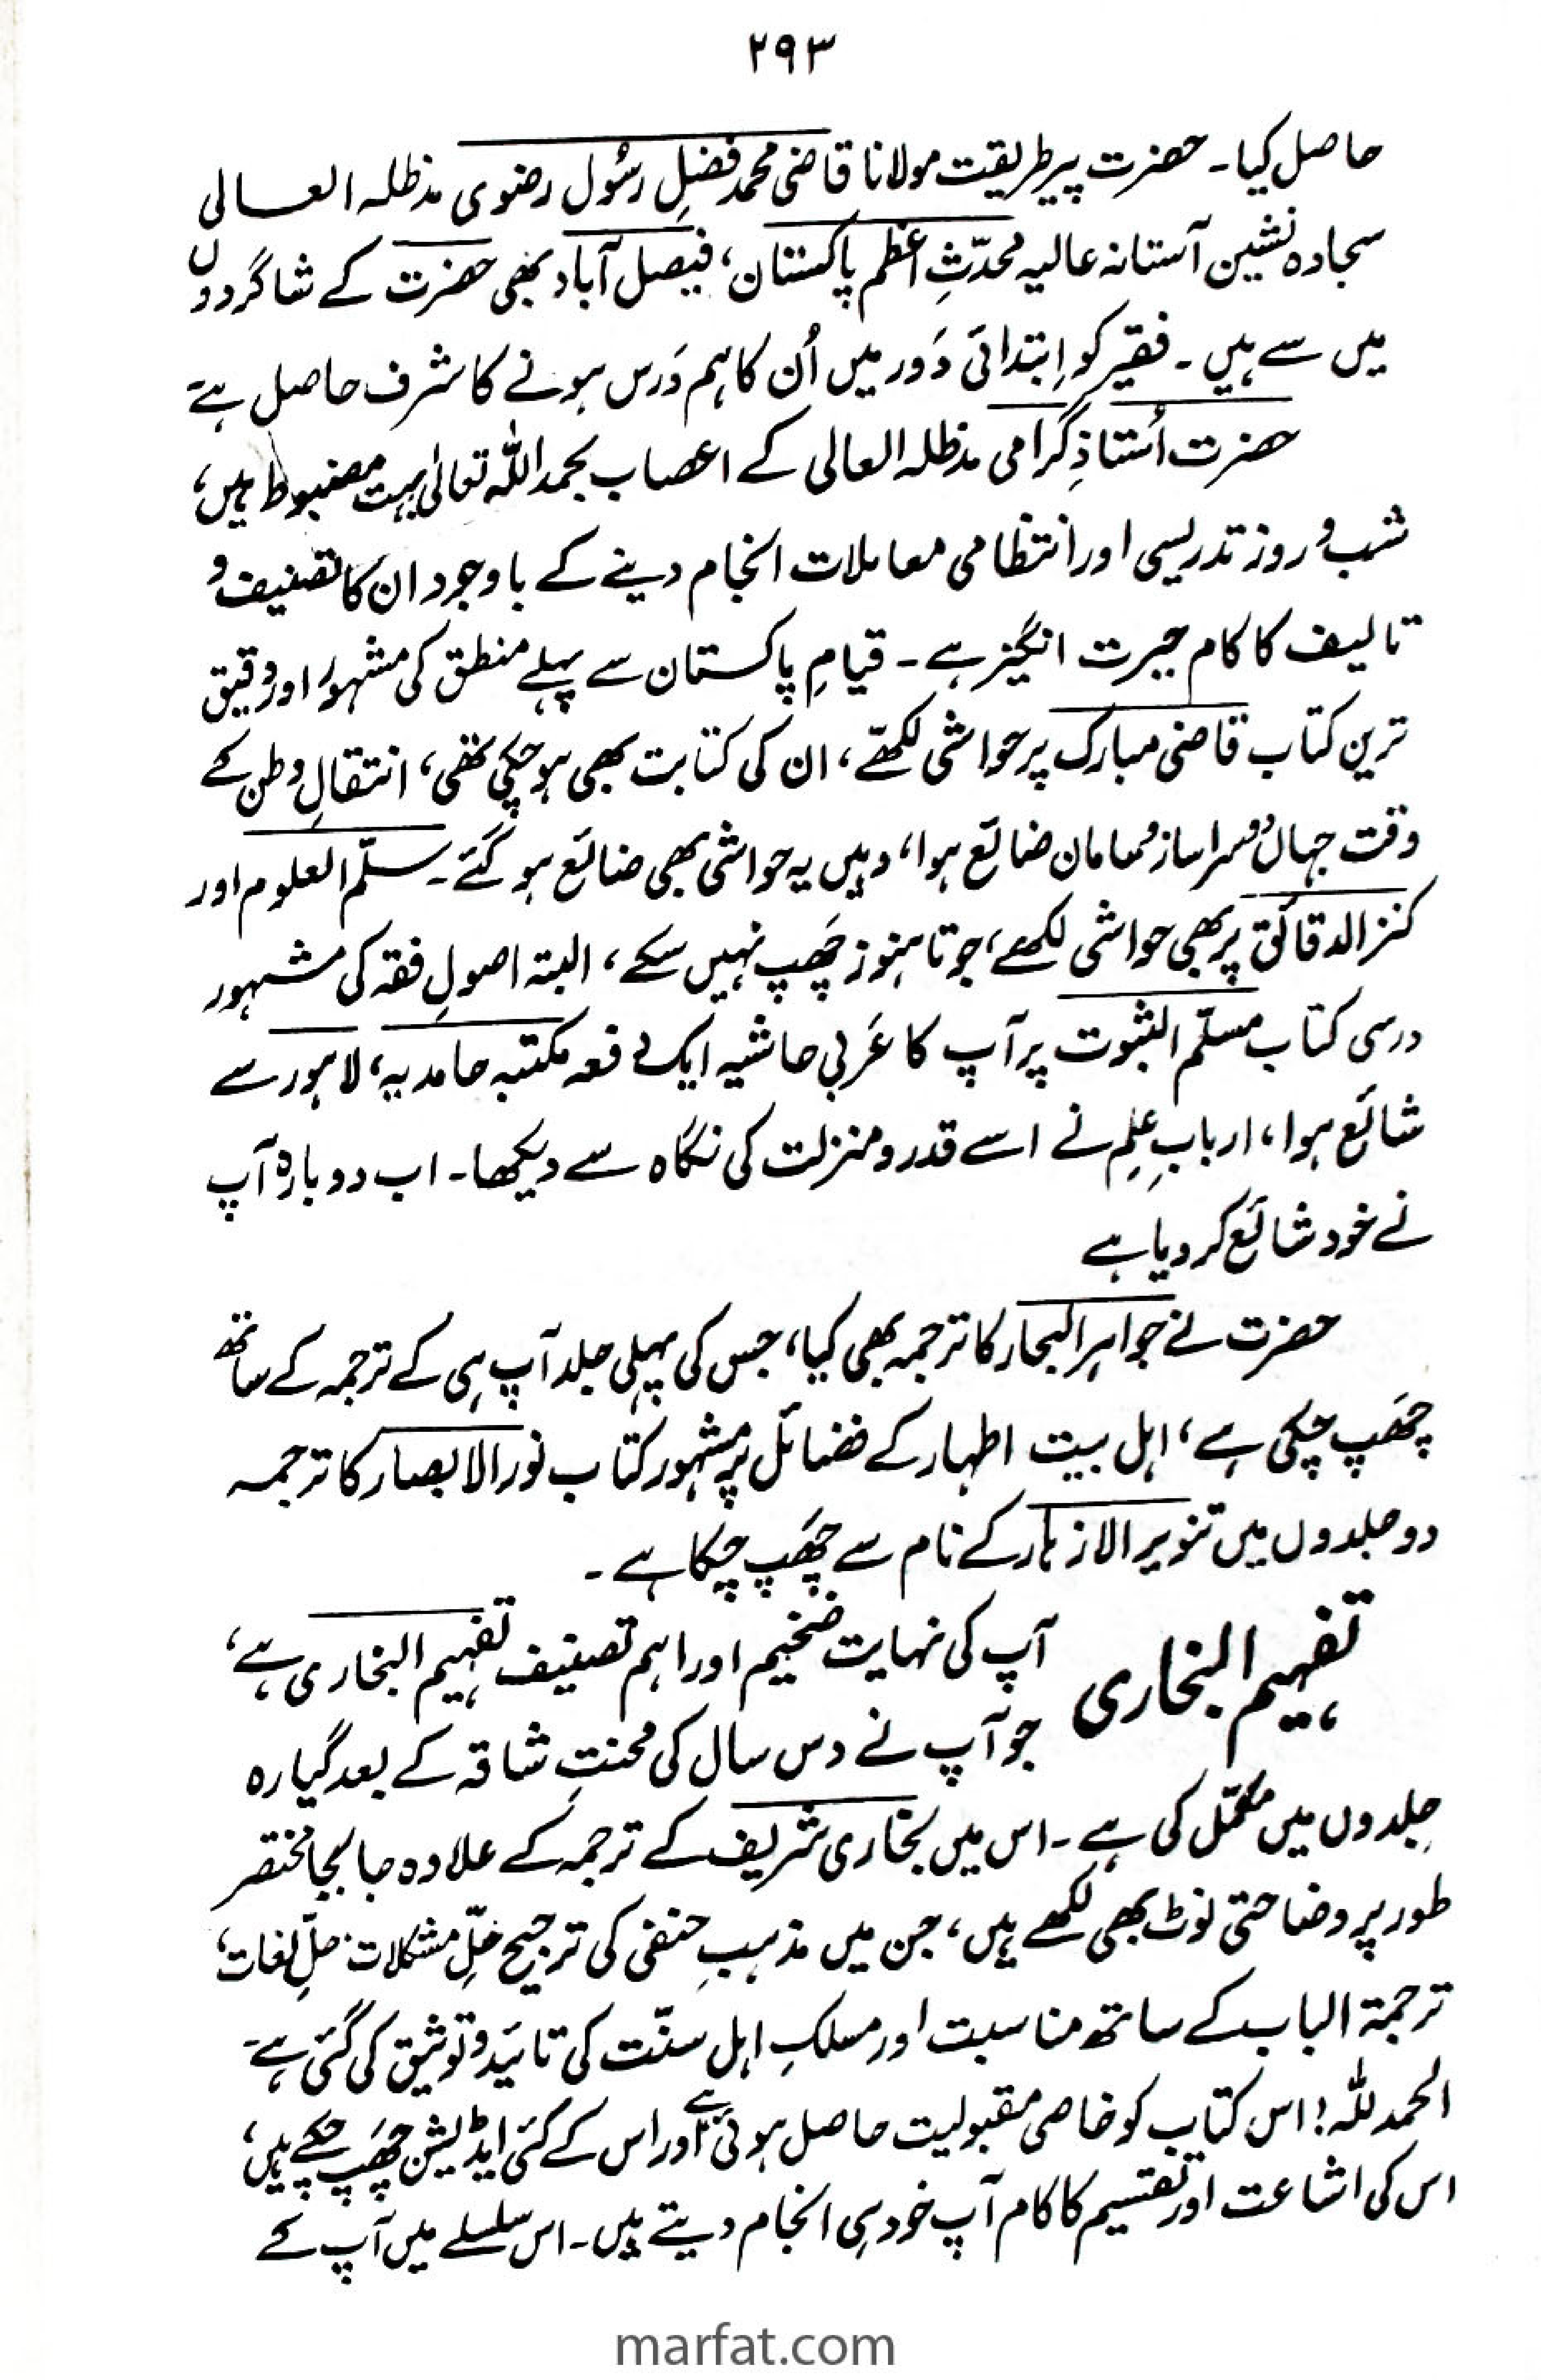 ۲۹۳
حاصل کیا۔ حضرت پیر طریقت مولانا قاضی محمد فضلِ رسُول رضوی مدظلہ العالی
سجادہ نشین آستانہ عالیہ محدّثِ اعظم پاکستان، فیصل آباد بھی حضرت کے شاگردوں
میں سے ہیں۔ فقیر کو اِبتدائی دَور میں اُن کا ہم دَرس ہونے کا شرف حاصل ہے
حضرت اُستاذِ گرامی مدظلہ العالی کے اعصاب بحمد اللہ تعالیٰ بہت مضبوط ہیں،
شب و روز تدریسی اور انتظامی معاملات انجام دینے کے باوجود ان کا تصنیف و
تالیف کا کام حیرت انگیز ہے۔ قیامِ پاکستان سے پہلے منطق کی مشہور اور دقیق
ترین کتاب قاضی مبارک پر حواشی لکھّے، ان کی کتابت بھی ہو چکی تھی، انتقالِ وطن کے
وقت جہاں دوسرا ساز و سامان ضائع ہوا، وہیں یہ حواشی بھی ضائع ہو گئے۔ سلّم العلوم اور
کنز الدقائق پر بھی حواشی لکھے، جو تا ہنوز چَھپ نہیں سکے، البتہ اصولِ فقہ کی مشہور
درسی کتاب مسلّم الثبوت پر آپ کا عَربی حاشیہ ایک دفعہ مکتبہ حامدیہ، لاہور سے
شائع ہوا، اربابِ عِلم نے اسے قدر و منزلت کی نگاہ سے دیکھا۔ اب دوبارہ آپ
نے خود شائع کر دیا ہے
حضرت نے جواہر البحار کا ترجمہ بھی کیا، جس کی پہلی جلد آپ ہی کے ترجمہ کے ساتھ
چھَپ چکی ہے، اہل بیت اطہار کے فضائل پر مشہور کتاب نور الابصار کا ترجمہ
دو جلدوں میں تنویر الازہار کے نام سے چھَپ چکا ہے۔
تفہیم البخاری آپ کی نہایت ضخیم اور اہم تصنیف تفہیم البخاری ہے،
جو آپ نے دس سال کی محنتِ شاقہ کے بعد گیارہ
جِلدوں میں مکمّل کی ہے۔ اس میں بخاری شریف کے ترجمہ کے علاوہ جا بجا مختصر
طور پر وضاحتی نوٹ بھی لکھے ہیں، جن میں مذہبِ حنفی کی ترجیح حلِّ مشکلات، حلِّ لغات،
ترجمۃ الباب کے ساتھ مناسبت اور مسلکِ اہل سنّت کی تائید و توثیق کی گئی ہے۔
الحمد للہ! اس کتاب کو خاصی مقبولیت حاصل ہوئی ہے اور اس کے کئی ایڈیشن چھَپ چکے ہیں،
اس کی اشاعت اور تقسیم کا کام آپ خود ہی انجام دیتے ہیں۔ اس سلسلے میں آپ کے
marfat.com